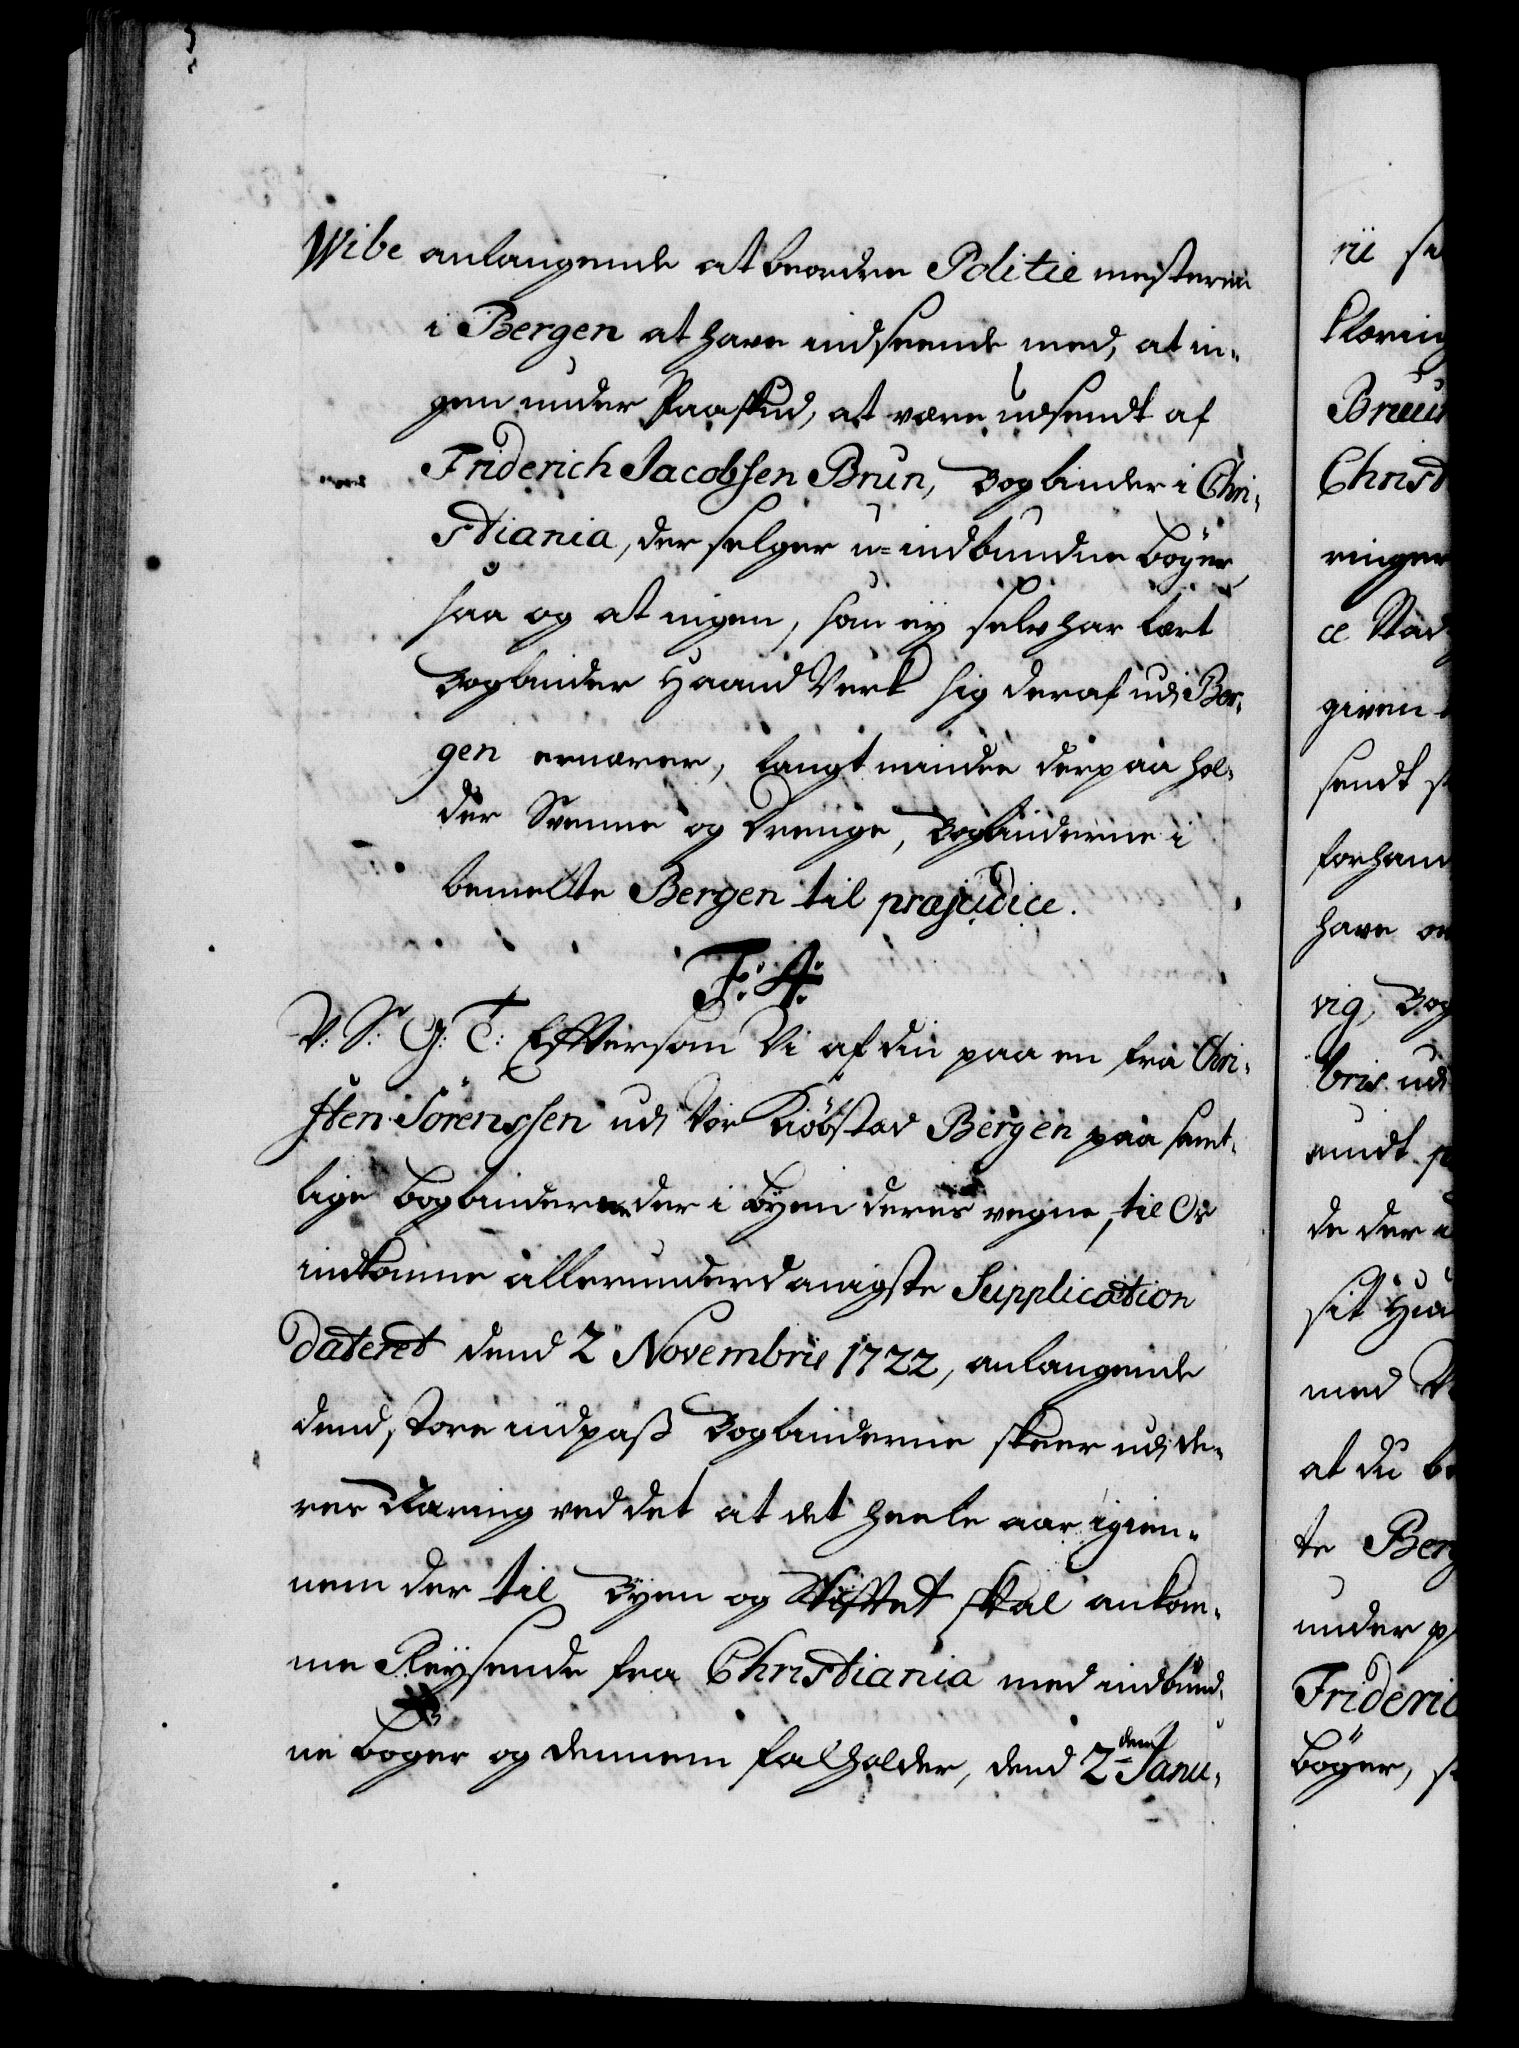 Wibe anlangende at beordre Politie mesteren
i Bergen at have indseende med, at in-
gen under Paaskud, at være udsendt af
Friderich Jacobsen Brun, Bogbinder i Chri-
stiania, der selger u-indbundne bøger,
saa og at ingen, som ey selv har lært
Bogbinder Haand Verk sig deraf udi Ber-
gen ernærer, langt mindre derpaa hol-
der Svenne og Drenge, Bogbinderne i
bemelte Bergen til præjudice.
F: 4:
V: S: G: T: Efftersom Vi af din paa en fra Chri-
sten Sörenssen udi Vor Kiöbstad Bergen paa samt-
lige bogbinderne der i byen deres vegne, til Os
indkomne allerunderdanigste Supplication
dateret dend 2 Novembris 1722, anlangende
dend store indpass Bogbinderne skeer udi de-
res Næring ved det at det heele aar igien-
nem der til Byen og Stifftet skal ankom-
me Reysende fra Christiania med indbund-
ne bøger og dennem falholder, dend 2den Janu-
rii
Næring
Bruun
Christ
ringer
given
sendt
forhand
have
vig, Bog
bris udi
de der i
sit
med
at du be
te Berg
under p
Frideric
bøger, s